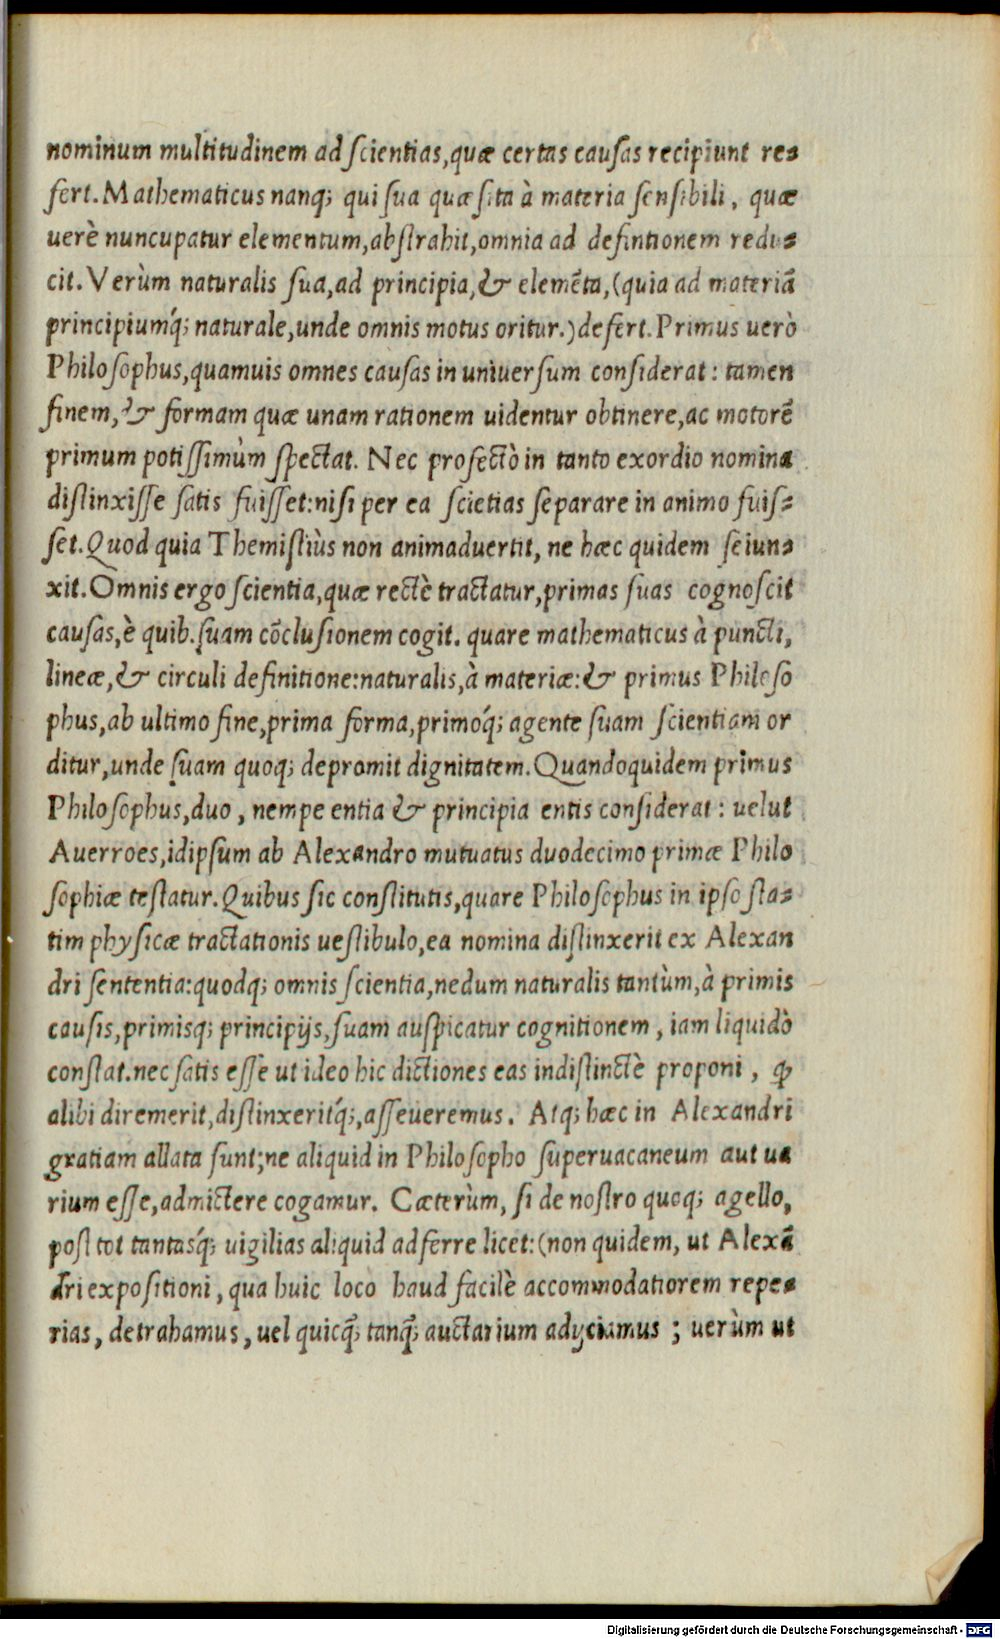 nominum multitudinem ad ſcientias,quæ certas cauſas recipiunt re-
fert. Mathematicus nanq; qui ſua quæſita à materia ſenſibili, quæ
uerè nuncupatur elementum,abſtrahit,omnia ad defintionem redu-
cit. Verùm naturalis ſua,ad principia,& elemẽta,(quia ad materiã
principiumq́; naturale,unde omnis motus oritur.)defert. Primus uerò
Philoſophus,quamuis omnes cauſas in uniuerſum conſiderat: tamen
finem,& formam quæ unam rationem uidentur obtinere,ac motorẽ
primum potiſſimùm ſpectat. Nec profectò in tanto exordio nomina
diſtinxiſſe ſatis fuiſſet:niſi per ea ſcietias ſeparare in animo fuiſ-
ſet. Quod quia Themiſtiùs non animaduertit, ne hæc quidem ſeiun-
xit. Omnis ergo ſcientia,quæ rectè tractatur,primas ſuas cognoſcit
cauſas,è quib. ſuam cõcluſionem cogit. quare mathematicus à puncti,
lineæ,& circuli definitione:naturalis,à materiæ:& primus Philoſo
phus,ab ultimo fine,prima forma,primoq́; agente ſuam ſcientiam or
ditur,unde ſuam quoq; depromit dignitatem. Quandoquidem primus
Philoſophus,duo, nempe entia & principia entis conſiderat: uelut
Auerroes,idipſum ab Alexandro mutuatus duodecimo primæ Philo
ſophiæ teſtatur. Quibus ſic conſtitutis,quare Philoſophus in ipſo ſta-
tim phyſicæ tractationis ueſtibulo,ea nomina diſtinxerit ex Alexan
dri ſententia:quodq; omnis ſcientia,nedum naturalis tantùm,à primis
cauſis,primisq; principijs,ſuam auſpicatur cognitionem, iam liquidò
conſtat. nec ſatis eſſè ut ideo hic dictiones eas indiſtinctè proponi, ꝙ
alibi diremerit,diſtinxeritq́;,aſſeueremus. Atq; hæc in Alexandri
gratiam allata ſunt;ne aliquid in Philoſopho ſuperuacaneum aut ua
rium eſſe,admictere cogamur. Cæterùm, ſi de noſtro quoq; agello,
poſt tot tantasq́; uigilias aliquid adferre licet:(non quidem, ut Alexã
dri expoſitioni, qua huic loco haud facilè accommodatiorem repe-
rias, detrahamus, uel quicq̃; tanq̃; auctarium adijciamus; uerùm ut
Digitalisierung gefördert durch die Deutsche Forschungsgemeinschaft - DFG